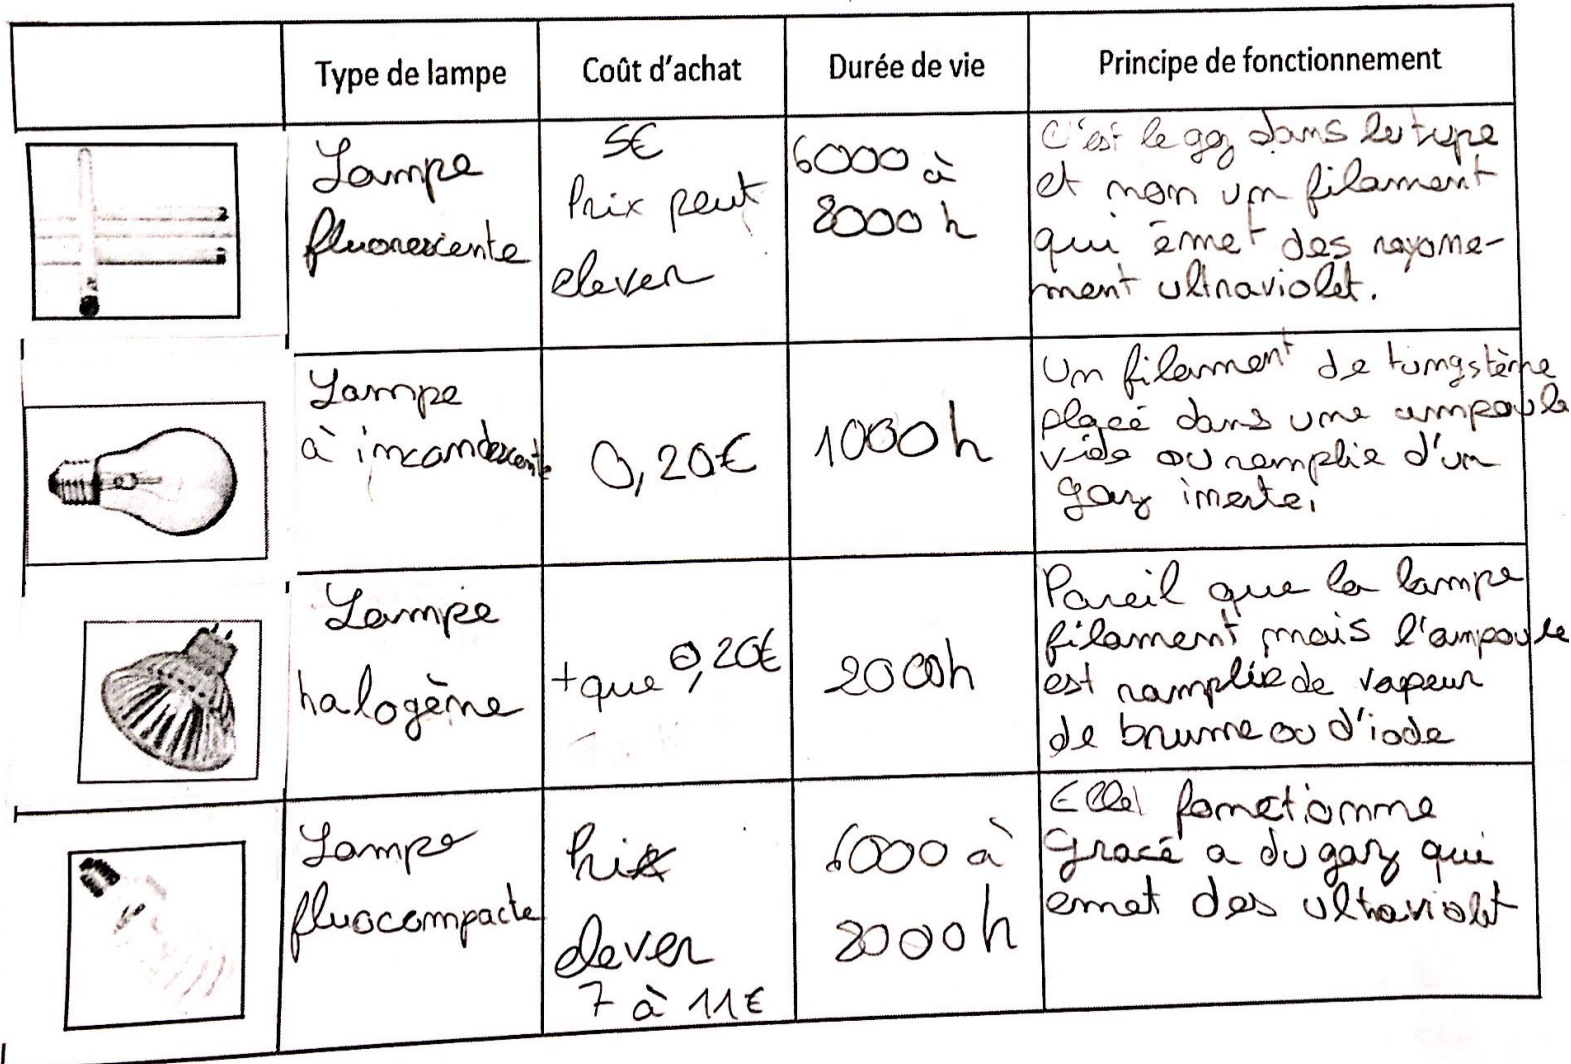 Type de lampe
Coût d'achat
Durée de vie
Principe de fonctionnement
Lampe
fluorescente
5€
Prix peut
elever
6000 à
8000 h
C'est le gaz dans le type
et non un filament
qui émet des rayone-
ment ultraviolet.
Lampe
à incandescente
0,20€
1000h
Un filament de tungstène
placé dans une ampoule
vide ou remplie d'un
gaz inerte,
Lampe
halogène
+ que 0,20€
2000h
Pareil que la lampe
filament mais l'ampoule
est ramplie de vapeur
de brume ou d'iode
Lampe
fluocompacte
Prix
elever
7 à 11€
6000 à
8000h
Elle fonctionne
Grace a du gaz qui
emet des ultraviolet